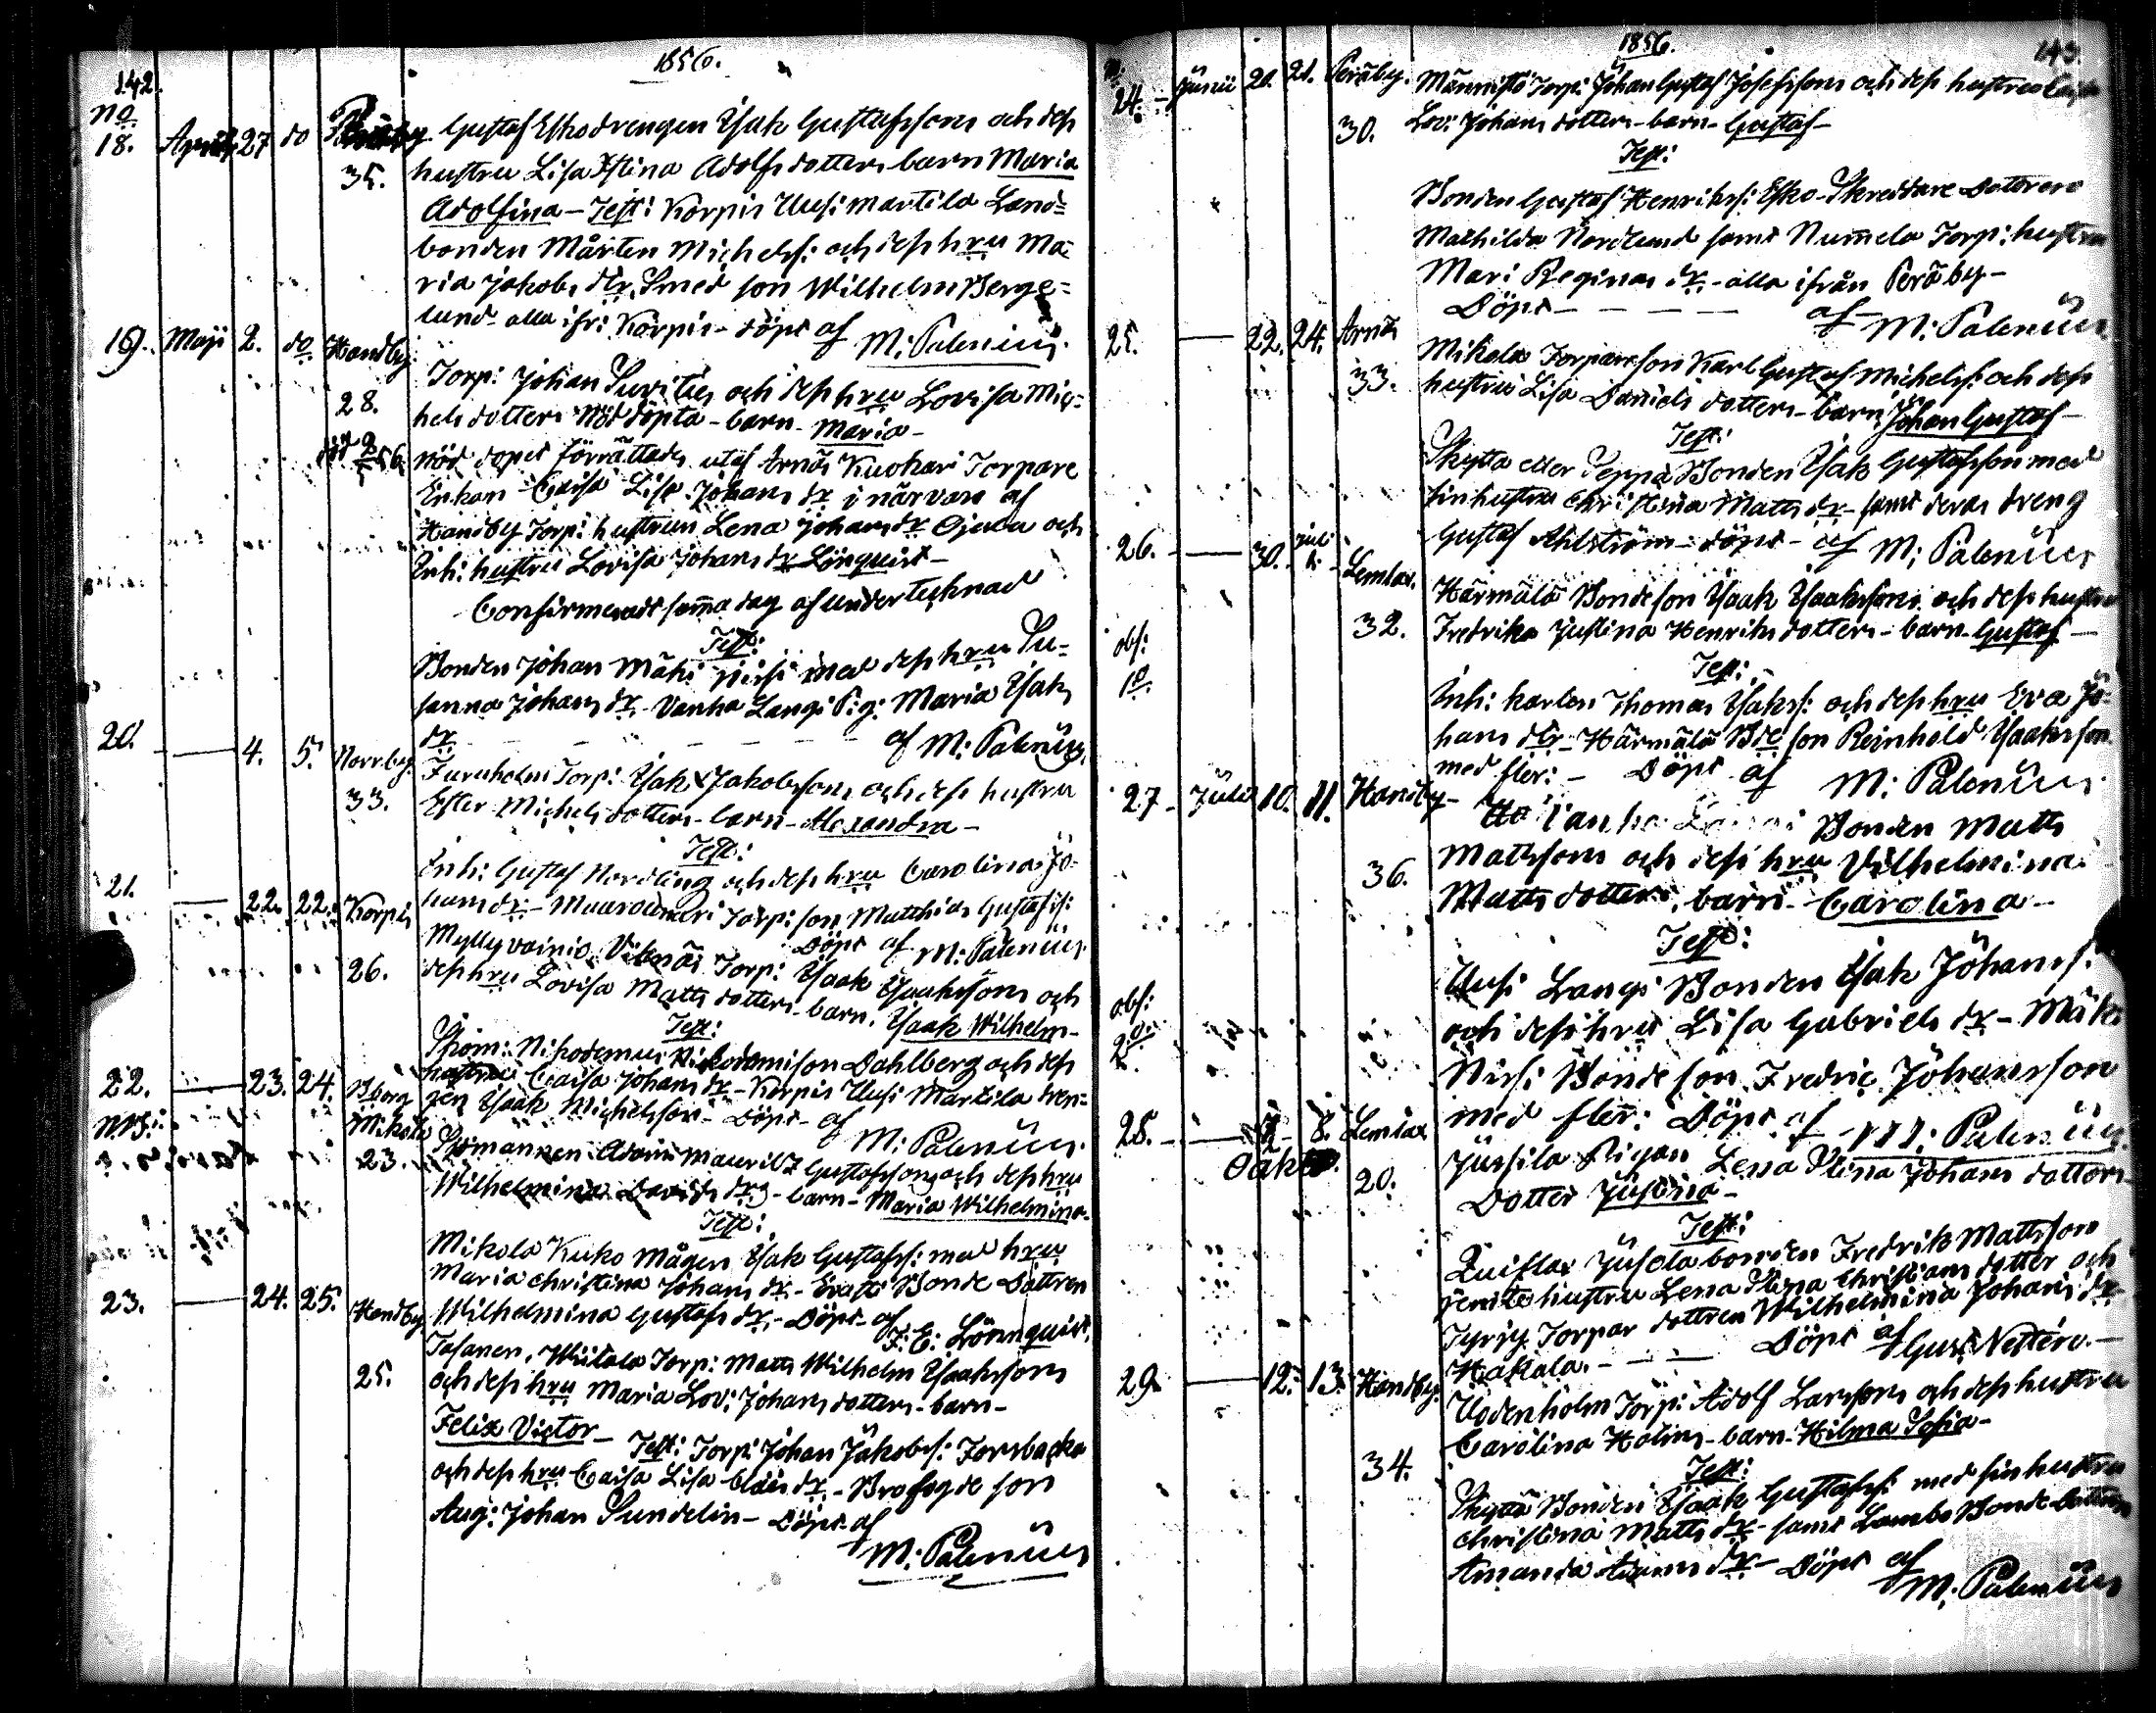 142.
1856.
No
18. April 27 do Peräby Gustaf Esko drengen Isak Gustafssons och dess
35. hustru Lisa Stina Adolfs dotters barn Maria
Adolfina – Test: Korpis Uusi martila Land=
bonden Mårten Michelss: och dess hru Ma=
ria Jakobs dtr, Smed son Wilhelm Berge=
lund alla ifr: Korpis – döpt af M: Palenius
19. Maji 2. do Handby Torp: Johan Suvities och dess hru Lovisa Mic=
28. hels dotters Nöd döpta – barn – Maria –
nöd dopet förrättades utaf Arnäs Kuokari Torpare
Enkan Caisa Lisa Johans dr i närvaro af
Handby Torp: hustrun Lena Johans dr Ojala och
Inh: hustru Lovisa Johans dr Lönquist –
Confirmeradt samma dag af undertecknad
Test:
Bonden Johan Mäki med dess hru Su=
sanna Johans dr – Vanha Langi Pig: Maria Isaks
dr – af M: Palenius.
20. — 4. 5. Norrby. Furuholm Torp: Isak Jakobssons och dess hustru
33. Ester Michels dotters – barn – Alexandra –
Test:
Inh: Gustaf Nordling och dess hru Carolina Jo=
hans dr – Torp: son Matthias Gustafss:
Döpt af M: Palenius
21. — 22. 22. Korpis Myllyvainio Torp: Isaak Isaakssons och
26. dess hru Lovisa Matts dotters – barn. Isaak Wilhelm –
Test:
Nikodemus Nikodemison Dahlberg och dess
hustru Caisa Johans dr – Korpis Uusi Martila dren=
gen Isaak Michelsson – Döpt – af
M: Palenius.
22. — 23. 24. Borg
Mikola
23. Adam Mauritz Gustafssons och dess hru
Wilhelmina Davids drs – barn – Maria Wilhelmina.
Test:
Mikola Kuko Mågen Isak Gustafss: med hru
Maria Christina Johans dr – Bonde Dottren
Wilhelmina Gustafs dr – Döpt af
F: E: Lönnquist.
23. — 24. 25. Handby Tasanen, Wiitala Torp: Matts Wilhelm Isaakssons
25. och dess hru Maria Lov: Johans dotters – barn –
Felix Victor –
Test: Torp: Johan Jakobss: Forsbacka
och dess hru Caisa Lisa dr – son
Aug: Johan Sundelin – Döpt af
M: Palenius
1856.
143.
24. – Junii 20. 21. Peräby. Männistö Torp: Johan Gustaf Josefssons och dess hustru
30. Lov: Johans dotters – barn – Gustaf –
Test:
Bonden Gustaf Henrikss: Esko – Skreddare Dotteren
Mathilda Nordlund samt Nummela Torp: hustru
Mari Reginas dr – alla ifrån Peräby –
Döpt – af – M: Palenius.
25. — 22. 24. Arnäs Mikola Torpareson Karl Gustaf Michelss: och dess
33. hustru Lisa Daniels dotters – barn Johan Gustaf –
Test:
Skytta eller Seppä Bonden Isak Gustafsson med
sin hustru Christina Matts dr – samt deras dreng
Gustaf Ahlström – döpt – af M: Palenius
26. — 30. Jul: Lemlax. Härmälä Bondeson Isaak Isaakssons och dess hustru
32. Fredrika Justina Henriks dotters – barn – Gustaf –
obs:
Test:
Inh: karlen Thomas Isakss: och dess hru Eva Jo=
hans dtr – Härmälä Bde son Reinhold Isaaksson
med fler: – Döpt af M: Palenius
27 – Julii 10. 11. Handby – Vanha Langi Bonden Matts
36. Mattssons och dess hru Vilhelmina
Matts dotters, barn – Carolina –
Test:
Uusi Langi Bonden Isak Johanss:
och dess hru Lisa Gabriels dr – Mäki
Bondeson Fredric Johansson
med fler: Döpt af M: Palenius.
obs:
28. — 8. Lemlax Jussila Pigan Lena Stina Johans dotters
20. Dotter Justina –
Oäkta.
Test:
bonden Fredrik Mattsson
hustru Lena Stina Christians dotter och
Torpar dottren Wilhelmina Johans dr
Hakala. – Döpt af Gust. Nettero. –
29. — 12. 13. Handby. Uodenholm Torp: Adolf Larssons och dess hustru
34. Carolina Holms – barn – Hilma Sofia –
Test:
Skyttä Bonden Isaak Gustafss: med sin hustru
Christina Matts dr – samt Lambo Bonde dottren
Amanda Adams dr – Döpt af
M. Palenius